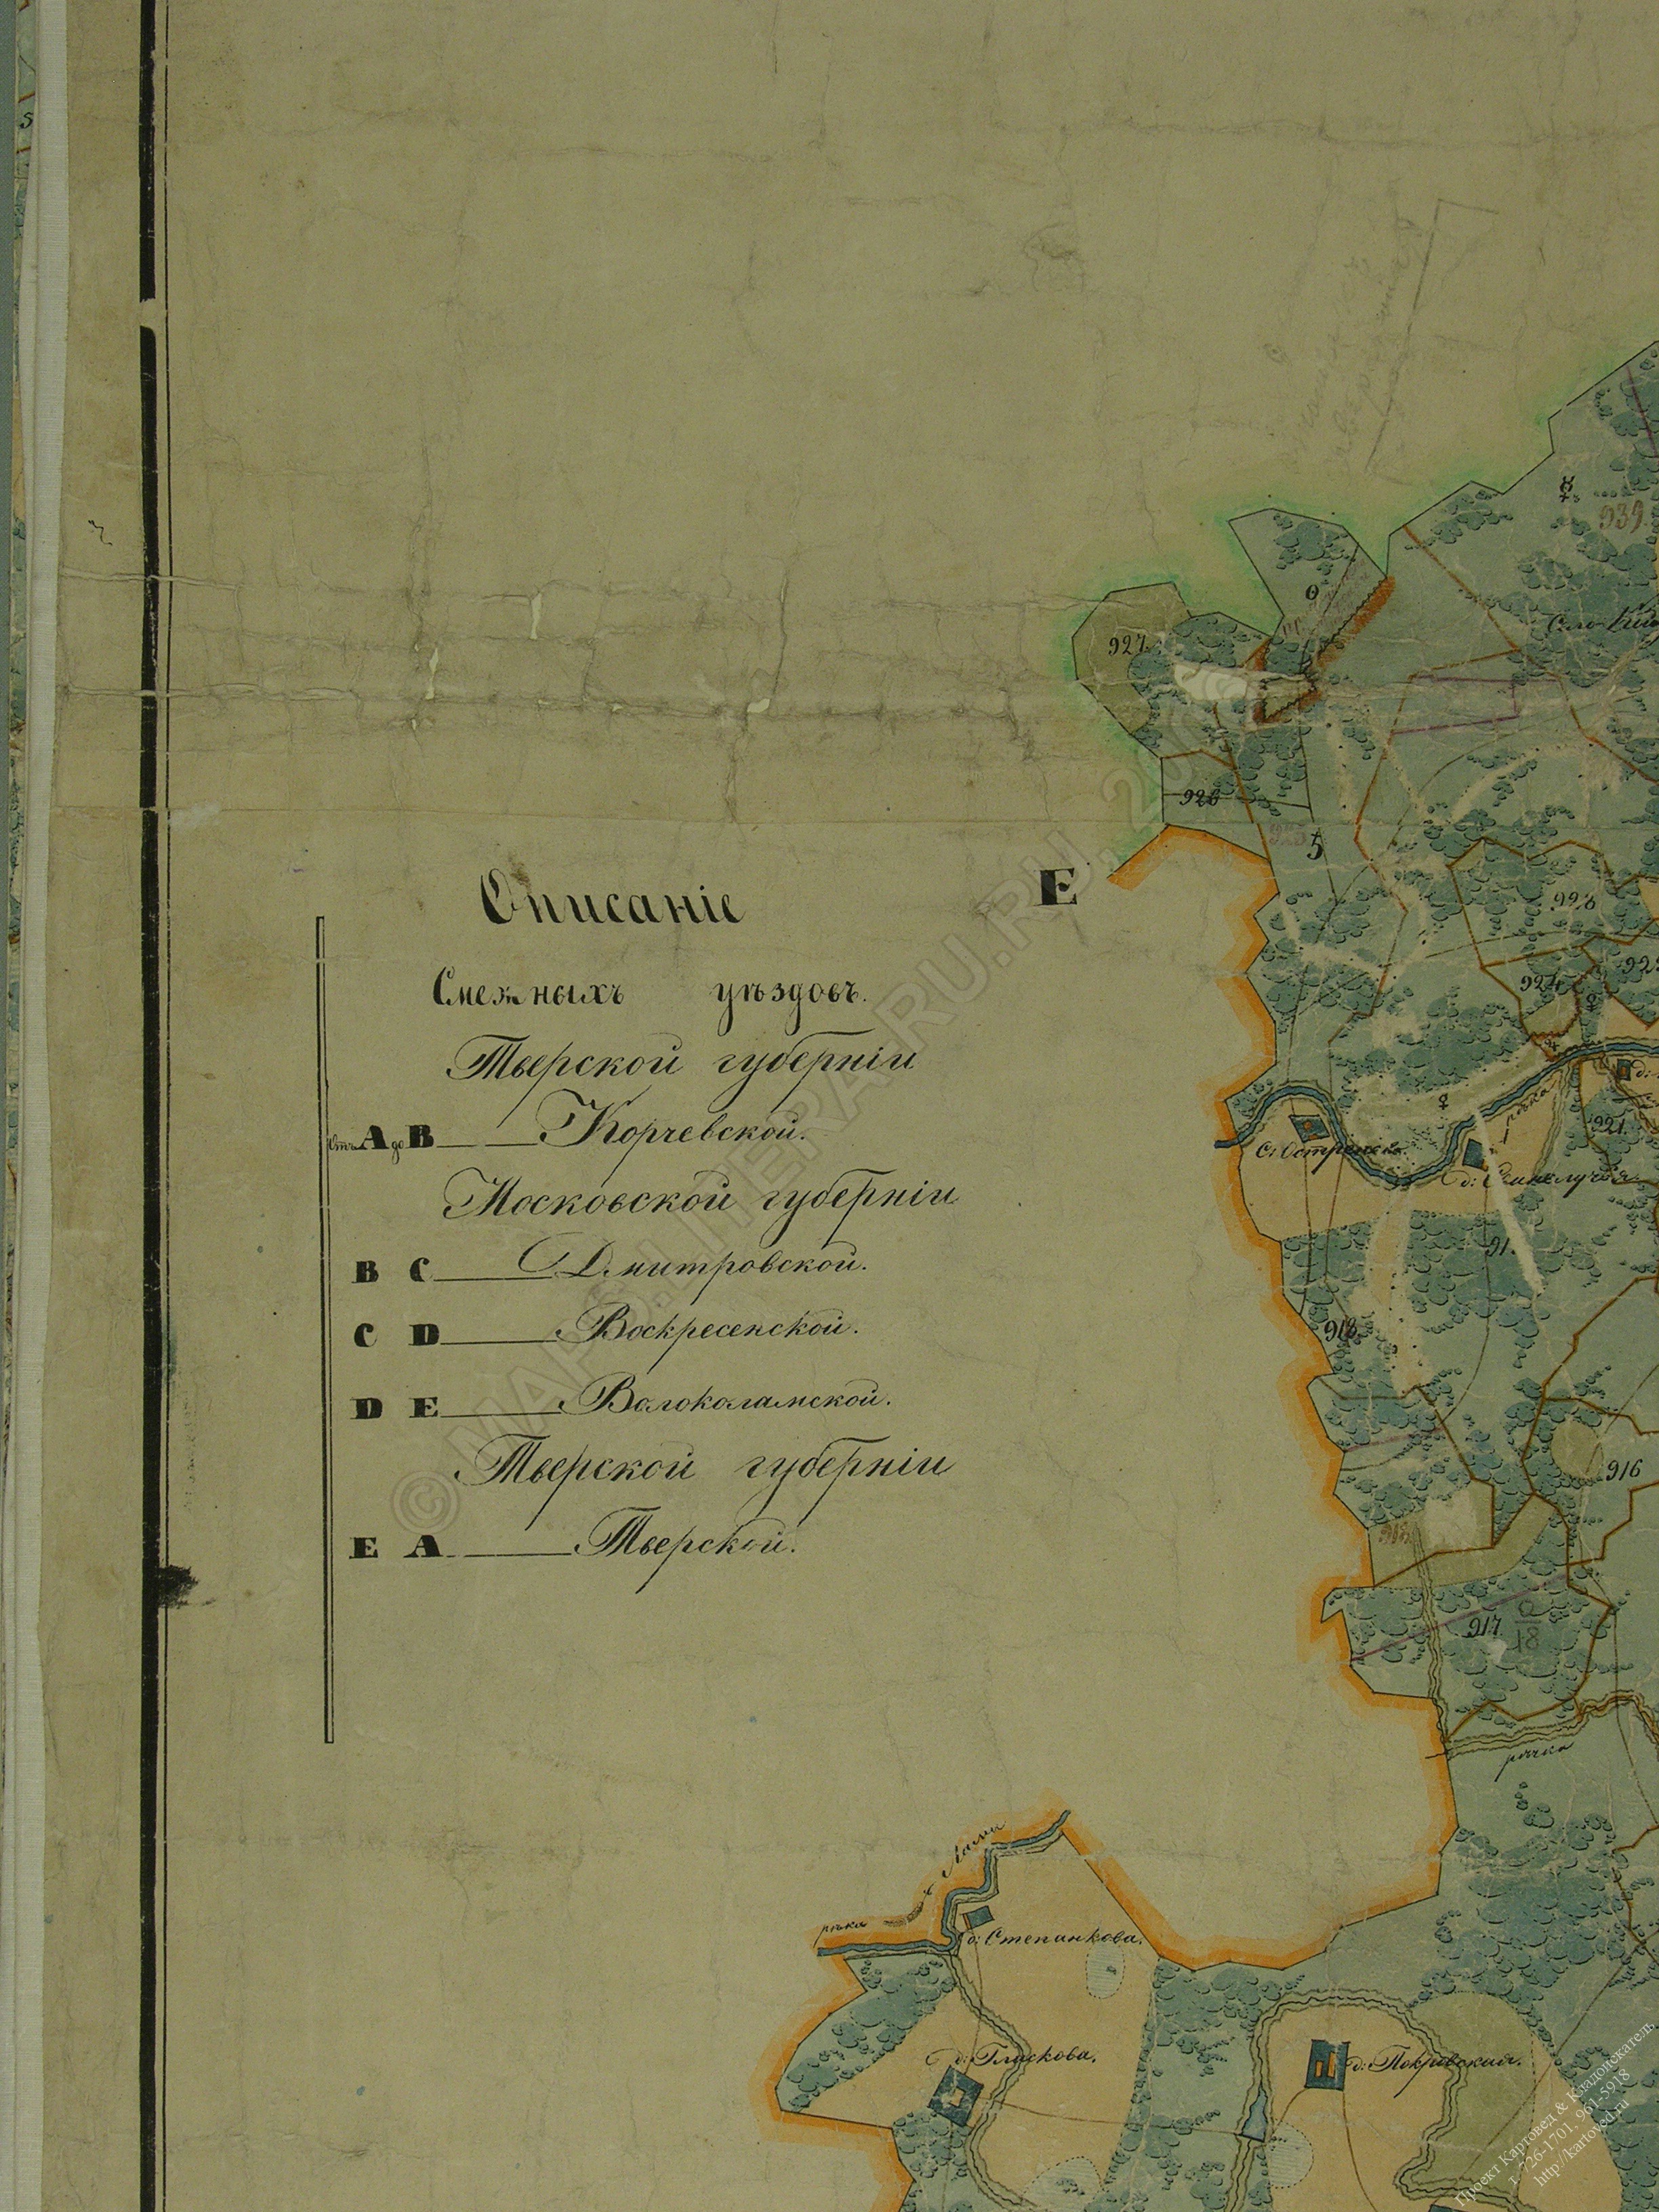 Описаніе
Смежныхъ уѣздовъ.
Тверской губерніи
Отъ A до B Корчевской.
Московской губерніи
B C Дмитровской.
C D Воскресенской.
D E Волоколамской.
Тверской губерніи
E A Тверской.
E
939
927.
926
5
922
924
921.
918
916
917.
с: Остренско.
рѣчка
рѣка Лама
д: Степанкова.
д: Гласкова.
д: Покровская.
© MAPS.LITERA-RU.RU, 20
Проект Картовед & Кладоискатель
т. 726-1701, 961-5918
http://kartoved.ru